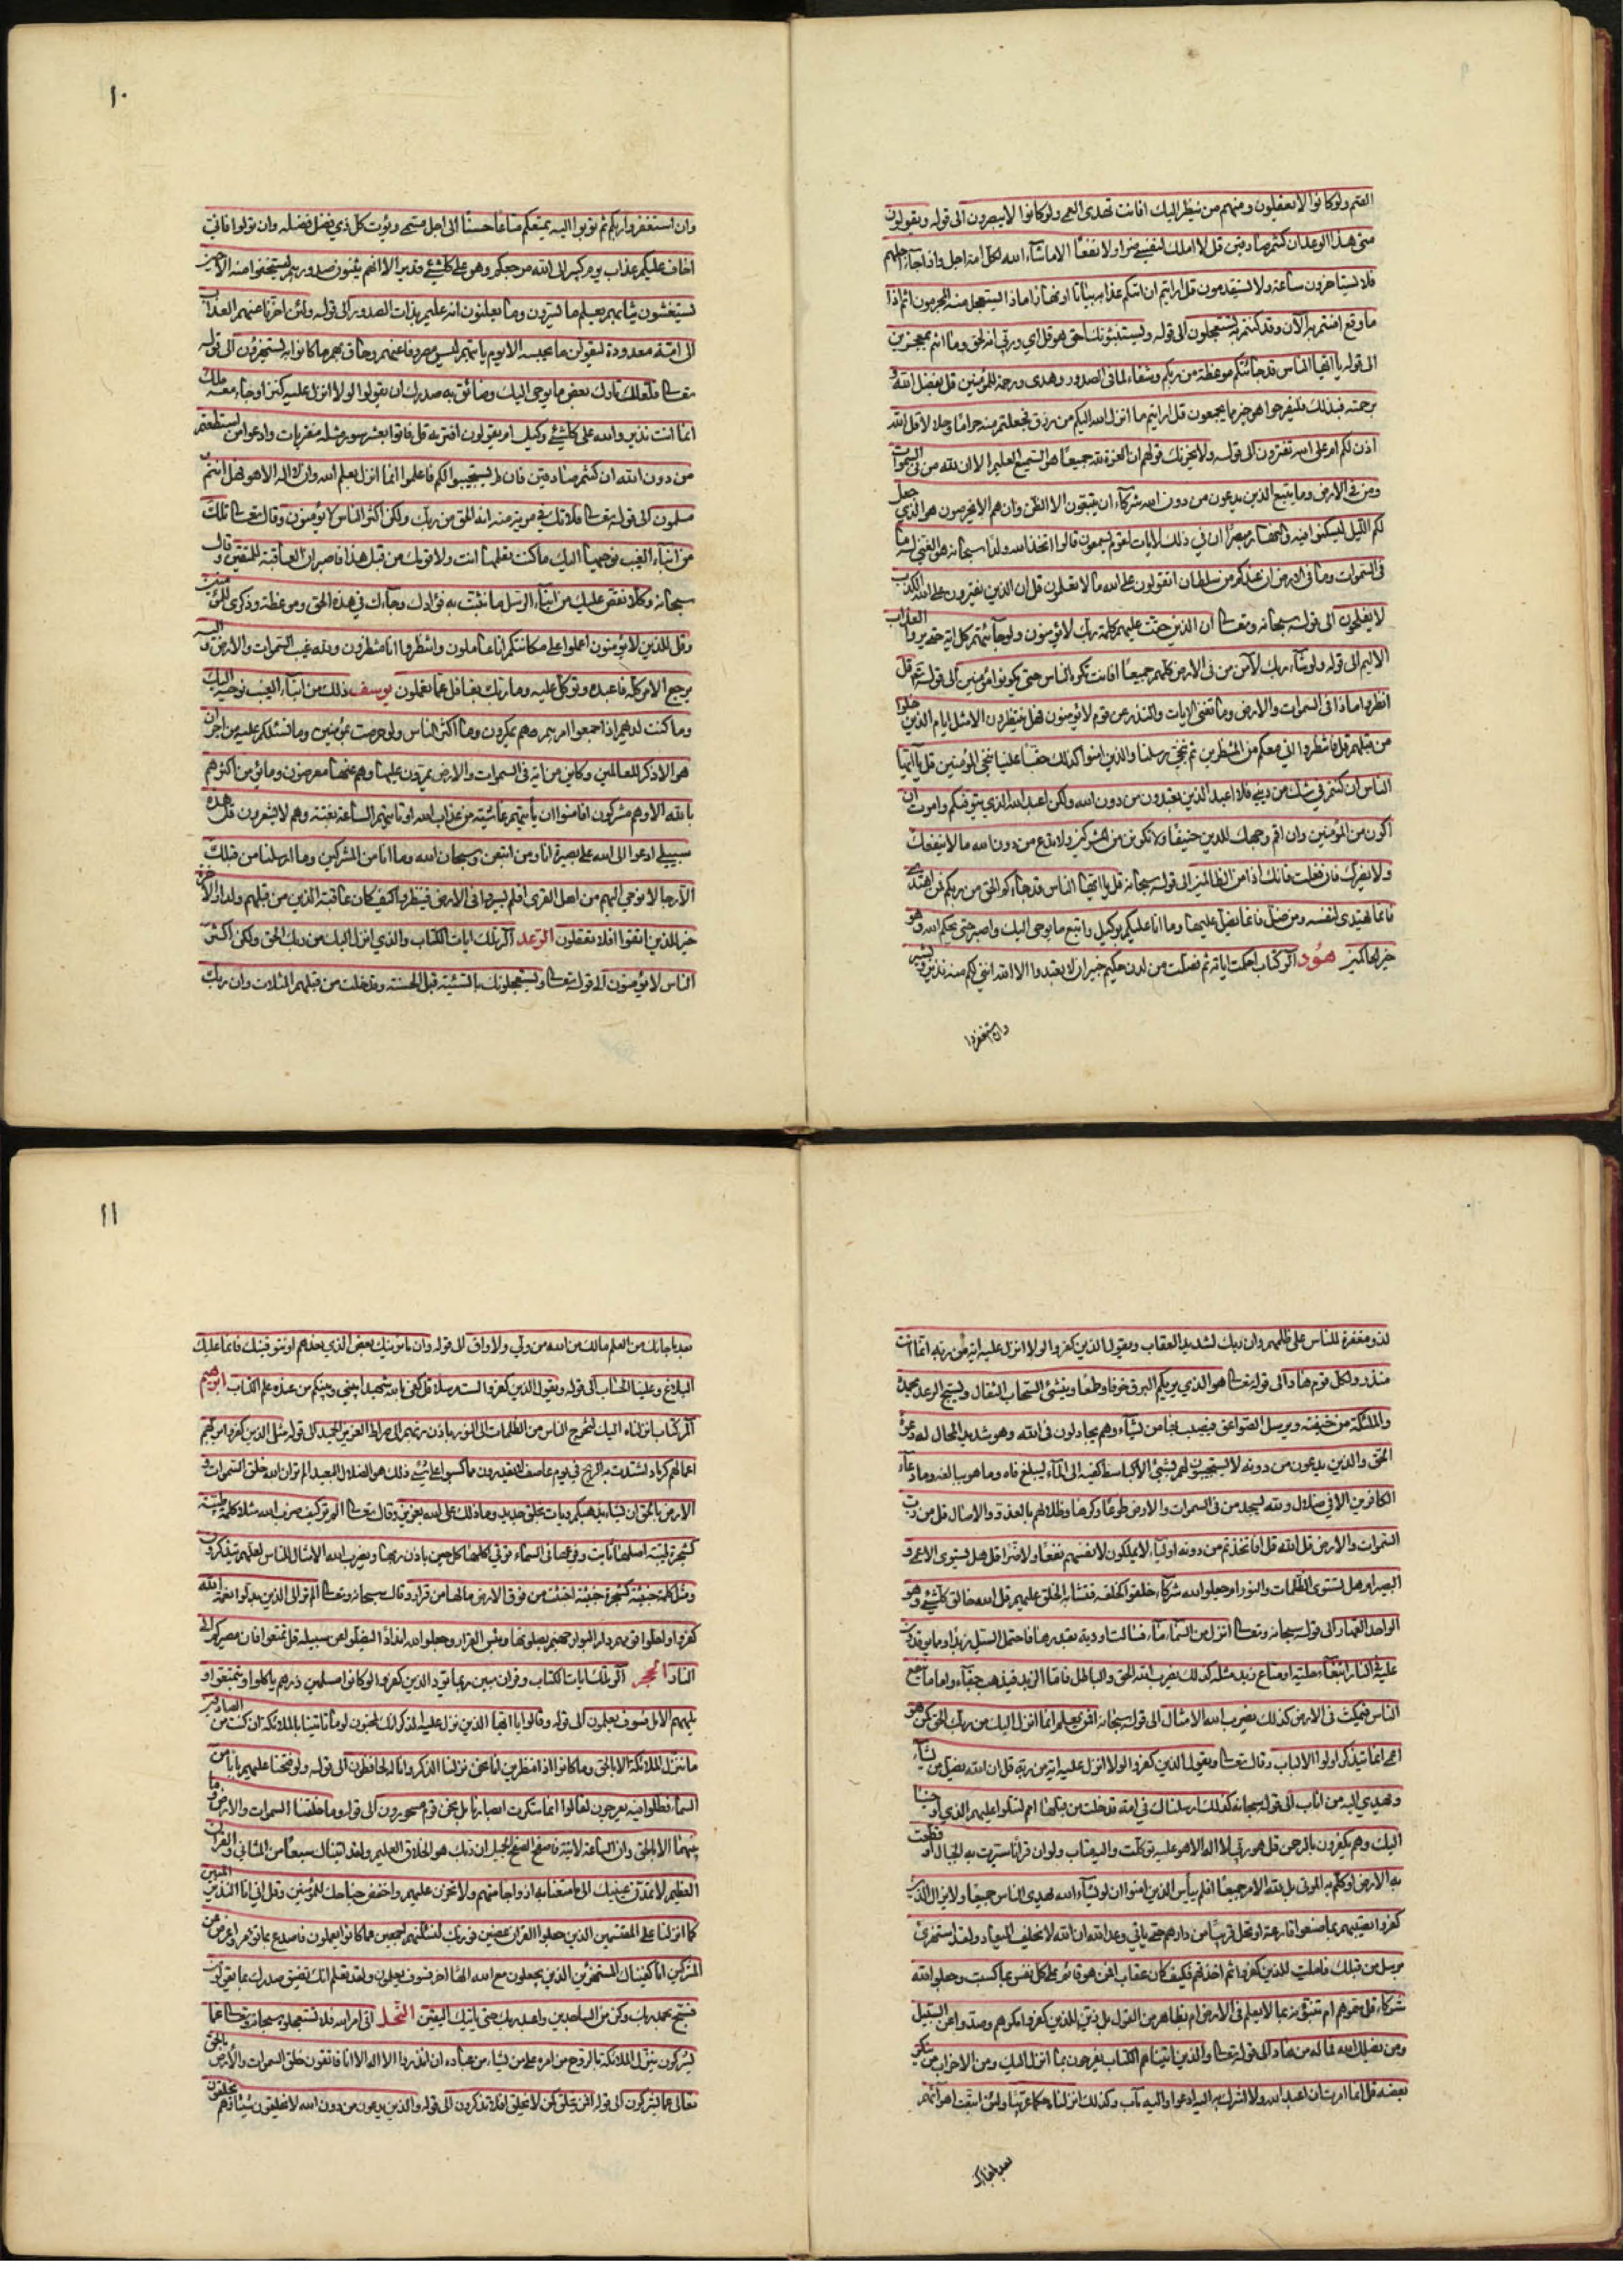 الصم ولو كانوا لا يعقلون ومنهم من ينظر اليك افانت تهدى العمى ولو كانوا لا يبصرون الى قوله ويقولون
متى هذا الوعد ان كنتم صادقين قل لا املك لنفسي ضرا ولا نفعا الا ماشآء الله لكل امة اجل واذا جآء اجلهم
فلا يستاخرون ساعة ولا يستقدمون قل ارايتم ان اتيكم عذابه بياتا او نهارا ماذا يستعجل منه المجرمون اثم اذا
ما وقع امنتم به الآن وقد كنتم به تستعجلون الى قوله ويستنبؤنك احق هو قل اي وربي انه لحق وما انتم بمعجزين
الى قوله يا ايها الناس قد جائتكم موعظة من ربكم وشفاء لما فى الصدور وهدى ورحمة للمؤمنين قل بفضل الله و
برحمته فبذلك فليفرحوا هو خير مما يجمعون قل ارايتم ما انزل الله اليكم من رزق فجعلتم منه حراما وحلالا قل الله
اذن لكم ام على الله تفترون الى قوله ولا يحزنك قولهم ان العزة لله جميعا هو السميع العليم الا ان لله من فى السموات
ومن فى الارض وما يتبع الذين يدعون من دون الله شركآء ان يتبعون الا الظن وان هم الا يخرصون هو الذي جعل
لكم الليل لتسكنوا فيه والنهار مبصرا ان في ذلك لايات لقوم يسمعون قالوا اتخذ الله ولدا سبحانه هو الغني له ما
فى السموات وما فى الارض ان عندكم من سلطان اتقولون على الله ما لا تعلمون قل ان الذين يفترون على الله الكذب
لا يفلحون الى قوله سبحانه وتعالى ان الذين حقت عليهم كلمة ربك لا يؤمنون ولو جآئتهم كل اية حتى يروا العذاب
الاليم الى قوله ولو شآء ربك لآمن من فى الارض كلهم جميعا افانت تكره الناس حتى يكونوا مؤمنين الى قوله قل
انظروا ماذا فى السموات والارض وما تغنى الايات والنذر عن قوم لا يؤمنون فهل ينتظرون الا مثل ايام الذين خلوا
من قبلهم قل فانتظروا اني معكم من المنتظرين ثم ننجي رسلنا والذين امنوا كذلك حقا علينا ننجى المؤمنين قل يا ايها
الناس ان كنتم في شك من ديني فلا اعبد الذين تعبدون من دون الله ولكن اعبد الله الذي يتوفيكم وامرت ان
اكون من المؤمنين وان اقم وجهك للدين حنيفا ولا تكونن من المشركين ولا تدع من دون الله ما لا ينفعك
ولا يضرك فان فعلت فانك اذا من الظالمين الى قوله سبحانه قل يا ايها الناس قد جاءكم الحق من ربكم فمن اهتدى
فانما يهتدى لنفسه ومن ضل فانما يضل عليها وما انا عليكم بوكيل واتبع ما يوحى اليك واصبر حتى يحكم الله وهو
خير الحاكمين هود الر كتاب احكمت اياته ثم فصلت من لدن حكيم خبير ان لا تعبدوا الا الله اننى لكم منه نذير وبشير
وان استغفروا
١٠
وان استغفروا ربكم ثم توبوا اليه يمتعكم متاعا حسنا الى اجل مسمى ويؤت كل ذي فضل فضله وان تولوا فاني
اخاف عليكم عذاب يوم كبير الى الله مرجعكم وهو على كل شئ قدير الا انهم يثنون صدورهم ليستخفوا منه الا حين
يستغشون ثيابهم يعلم ما يسرون وما يعلنون انه عليم بذات الصدور الى قوله ولئن اخرنا عنهم العذاب
الى امة معدودة ليقولن ما يحبسه الا يوم ياتيهم ليس مصروفا عنهم وحاق بهم ما كانوا به يستهزؤن الى قوله
تعالى فلعلك تارك بعض ما يوحى اليك وضائق به صدرك ان يقولوا لولا انزل عليه كنز او جاء معه ملك
انما انت نذير والله على كل شئ وكيل ام يقولون افتريه قل فاتوا بعشر سور مثله مفتريات وادعوا من استطعتم
من دون الله ان كنتم صادقين فان لم يستجيبوا لكم فاعلموا انما انزل بعلم الله وان لا اله الا هو فهل انتم
مسلمون الى قوله تعالى فلا تك في مرية منه انه الحق من ربك ولكن اكثر الناس لا يؤمنون وقال تعالى تلك
من انباء الغيب نوحيها اليك ما كنت تعلمها انت ولا قومك من قبل هذا فاصبر ان العاقبة للمتقين وقال
سبحانه وكلا نقص عليك من انبآء الرسل ما نثبت به فؤادك وجآءك في هذه الحق وموعظة وذكرى للمؤمنين
وقل للذين لا يؤمنون اعملوا على مكانتكم انا عاملون وانتظروا انا منتظرون ولله غيب السموات والارض واليه
يرجع الامر كله فاعبده وتوكل عليه وما ربك بغافل عما تعملون يوسف ذلك من انبآء الغيب نوحيه اليك
وما كنت لديهم اذ اجمعوا امرهم وهم يمكرون وما اكثر الناس ولو حرصت بمؤمنين وما تسئلهم عليه من اجر ان
هو الا ذكر للعالمين وكاين من اية فى السموات والارض يمرون عليها وهم عنها معرضون وما يؤمن اكثرهم
بالله الا وهم مشركون افامنوا ان تأتيهم غاشية من عذاب الله او تاتيهم الساعة بغتة وهم لا يشعرون قل هذه
سبيلي ادعوا الى الله على بصيرة انا ومن اتبعن وسبحان الله وما انا من المشركين وما ارسلنا من قبلك
الا رجالا نوحي اليهم من اهل القرى افلم يسيروا فى الارض فينظروا كيف كان عاقبة الذين من قبلهم ولدار الاخرة
خير للذين اتقوا افلا تعقلون الرعد المر تلك ايات الكتاب والذي انزل اليك من ربك الحق ولكن اكثر
الناس لا يؤمنون الى قوله تعالى ويستعجلونك بالسيئة قبل الحسنة وقد خلت من قبلهم المثلات وان ربك
لذو مغفرة للناس على ظلمهم وان ربك لشديد العقاب ويقول الذين كفروا لولا انزل عليه اية من ربه انما انت
منذر ولكل قوم هاد الى قوله تعالى هو الذي يريكم البرق خوفا وطمعا وينشئ السحاب الثقال ويسبح الرعد بحمده
والملئكة من خيفته ويرسل الصواعق فيصيب بها من يشآء وهم يجادلون فى الله وهو شديد المحال له دعوة
الحق والذين يدعون من دونه لا يستجيبون لهم بشئ الا كباسط كفيه الى المآء ليبلغ فاه وما هو ببالغه وما دعآء
الكافرين الا في ضلال ولله يسجد من فى السموات والارض طوعا وكرها وظلالهم بالغدو والاصال قل من رب
السموات والارض قل الله قل افاتخذتم من دونه اوليآء لا يملكون لانفسهم نفعا ولا ضرا قل هل يستوى الاعمى و
البصير ام هل تستوى الظلمات والنور ام جعلوا لله شركآء خلقوا كخلقه فتشابه الخلق عليهم قل الله خالق كل شئ وهو
الواحد القهار الى قوله سبحانه وتعالى انزل من السماء مآء فسالت اودية بقدرها فاحتمل السيل زبدا ومما يوقدون
عليه فى النار ابتغاء حلية او متاع زبد مثله كذلك يضرب الله الحق والباطل فاما الزبد فيذهب جفآء واما ما ينفع
الناس فيمكث فى الارض كذلك يضرب الله الامثال الى قوله سبحانه افمن يعلم انما انزل اليك من ربك الحق كمن هو
اعمى انما يتذكر اولوا الالباب وقال تعالى ويقول الذين كفروا لولا انزل عليه اية من ربه قل ان الله يضل من يشآء
ويهدي اليه من اناب الى قوله سبحانه كذلك ارسلناك فى امة قد خلت من قبلها امم لتتلوا عليهم الذي اوحينا
اليك وهم يكفرون بالرحمن قل هو ربي لا اله الا هو عليه توكلت واليه متاب ولو ان قرانا سيرت به الجبال او قطعت
به الارض او كلم به الموتى بل لله الامر جميعا افلم ييأس الذين امنوا ان لو يشآء الله لهدى الناس جميعا ولا يزال الذين
كفروا تصيبهم بما صنعوا قارعة او تحل قريبا من دارهم حتى ياتي وعد الله ان الله لا يخلف الميعاد ولقد استهزئ
برسل من قبلك فامليت للذين كفروا ثم اخذتهم فكيف كان عقاب افمن هو قائم على كل نفس بما كسبت وجعلوا لله
شركاء قل سموهم ام تنبؤنه بما لا يعلم فى الارض ام بظاهر من القول بل زين للذين كفروا مكرهم وصدوا عن السبيل
ومن يضلل الله فما له من هاد الى قوله تعالى والذين اتيناهم الكتاب يفرحون بما انزل اليك ومن الاحزاب من ينكر
بعضه قل انما امرت ان اعبد الله ولا اشرك به اليه ادعوا واليه مآب وكذلك انزلناه حكما عربيا ولئن اتبعت اهوآئهم
بعد ما جاءك
١١
بعد ما جاءك من العلم مالك من الله من ولي ولا واق الى قوله وان ما نرينك بعض الذي نعدهم او نتوفينك فانما عليك
البلاغ وعلينا الحساب الى قوله ويقول الذين كفروا لست مرسلا قل كفى بالله شهيدا بيني وبينكم من عنده علم الكتاب ابرهيم
الر كتاب انزلناه اليك لتخرج الناس من الظلمات الى النور باذن ربهم الى صراط العزيز الحميد الى قوله مثل الذين كفروا بربهم
اعمالهم كرماد اشتدت به الريح في يوم عاصف لا يقدرون مما كسبوا على شئ ذلك هو الضلال البعيد الم تر ان الله خلق السموات و
الارض بالحق ان يشاء يذهبكم ويات بخلق جديد وما ذلك على الله بعزيز وقال تعالى الم تر كيف ضرب الله مثلا كلمة طيبة
كشجرة طيبة اصلها ثابت وفرعها فى السماء تؤتي اكلها كل حين باذن ربها ويضرب الله الامثال للناس لعلهم يتذكرون
ومثل كلمة خبيثة كشجرة خبيثة اجتثت من فوق الارض مالها من قرار وقال سبحانه وتعالى الم تر الى الذين بدلوا نعمة الله
كفرا واحلوا قومهم دار البوار جهنم يصلونها وبئس القرار وجعلوا لله اندادا ليضلوا عن سبيله قل تمتعوا فان مصيركم الى
النار الحجر الر تلك ايات الكتاب وقران مبين ربما يود الذين كفروا لو كانوا مسلمين ذرهم ياكلوا ويتمتعوا و
يلههم الامل فسوف يعلمون الى قوله وقالوا يا ايها الذي نزل عليه الذكر انك لمجنون لو ما تاتينا بالملائكة ان كنت من الصادقين
ما ننزل الملائكة الا بالحق وما كانوا اذا منظرين انا نحن نزلنا الذكر وانا له لحافظون الى قوله ولو فتحنا عليهم بابا من
السماء فظلوا فيه يعرجون لقالوا انما سكرت ابصارنا بل نحن قوم مسحورون الى قوله وما خلقنا السموات والارض وما
بينهما الا بالحق وان الساعة لاتية فاصفح الصفح الجميل ان ربك هو الخلاق العليم ولقد اتيناك سبعا من المثاني والقران
العظيم لا تمدن عينيك الى ما متعنا به ازواجا منهم ولا تحزن عليهم واخفض جناحك للمؤمنين وقل انى انا النذير المبين
كما انزلنا على المقتسمين الذين جعلوا القران عضين فوربك لنسئلنهم اجمعين عما كانوا يعملون فاصدع بما تؤمر واعرض عن
المشركين انا كفيناك المستهزئين الذين يجعلون مع الله الها اخر فسوف يعلمون ولقد نعلم انك يضيق صدرك بما يقولون
فسبح بحمد ربك وكن من الساجدين واعبد ربك حتى ياتيك اليقين النحل اتى امر الله فلا تستعجلوه سبحانه وتعالى عما
يشركون ينزل الملائكة بالروح من امره على من يشاء من عباده ان انذروا انه لا اله الا انا فاتقون خلق السموات والأرض بالحق
تعالى عما يشركون الى قوله افمن يخلق كمن لا يخلق افلا تذكرون الى قوله والذين يدعون من دون الله لا يخلقون شيئا وهم يخلقون